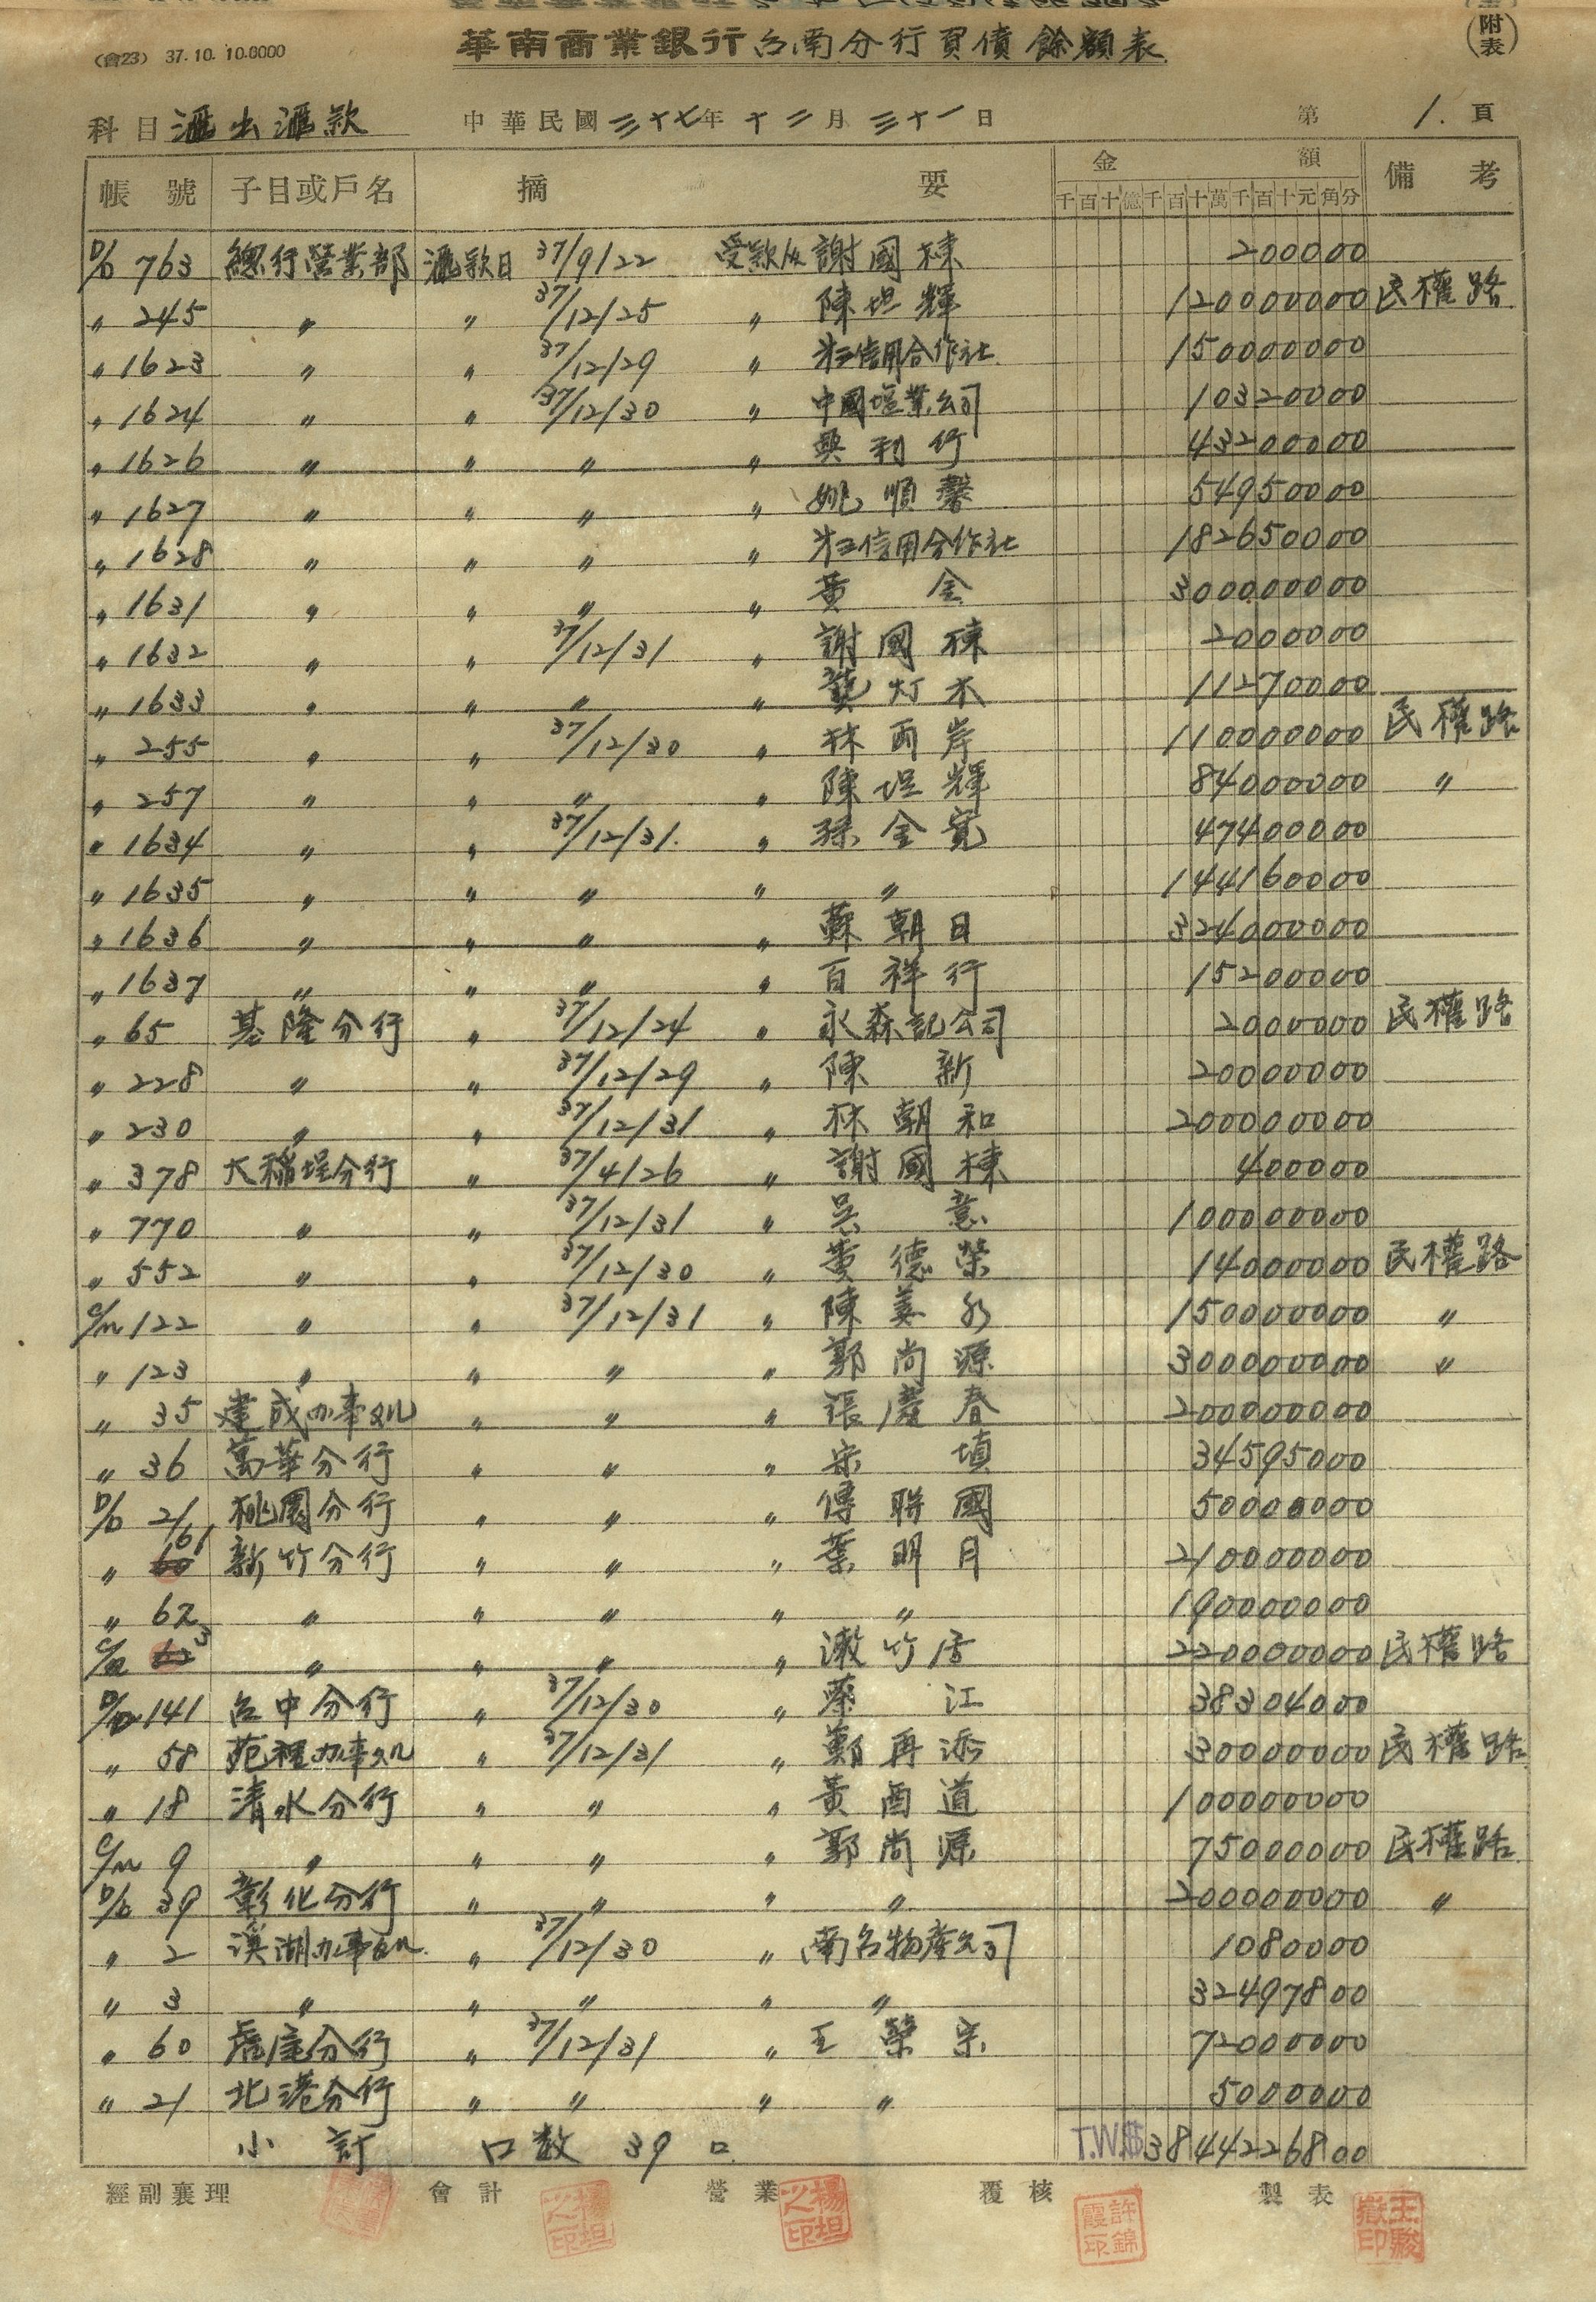 (會23) 37.10.10.6000
華南商業銀行台南分行買債餘額表
(附表)
科目 滙出滙款 中華民國三十七年十二月三十一日 第 1. 頁
帳號 子目或戶名 摘要 金額 備考
千百十億千百十萬千百十元角分
D/D 763 總行營業部 滙款日 37/9/22 受款人 謝國棟 200000
〃 245 〃 〃 37/12/25 〃 陳坦輝 120000000 民權路
〃 1623 〃 〃 37/12/29 〃 㐧三信用合作社 150000000
〃 1624 〃 〃 37/12/30 〃 中國塩業公司 10320000
〃 1626 〃 〃 〃 〃 興利行 43200000
〃 1627 〃 〃 〃 〃 姚順馨 54950000
〃 1628 〃 〃 〃 〃 㐧三信用合作社 182650000
〃 1631 〃 〃 〃 〃 黃金 300000000
〃 1632 〃 〃 37/12/31 〃 謝國棟 2000000
〃 1633 〃 〃 〃 〃 龔灯木 11270000
〃 255 〃 〃 37/12/30 〃 林雨岸 110000000 民權路
〃 257 〃 〃 〃 〃 陳坦輝 84000000 〃
〃 1634 〃 〃 37/12/31. 〃 孫金寬 47400000
〃 1635 〃 〃 〃 〃 〃 144160000
〃 1636 〃 〃 〃 〃 蘇朝日 324000000
〃 1637 〃 〃 〃 〃 百祥行 15200000
〃 65 基隆分行 〃 37/12/24 〃 永森記公司 2000000 民權路
〃 228 〃 〃 37/12/29 〃 陳新 20000000
〃 230 〃 〃 37/12/31 〃 林朝和 200000000
〃 378 大稲埕分行 〃 37/4/26 〃 謝國棟 400000
〃 770 〃 〃 37/12/31 〃 吴意 100000000
〃 552 〃 〃 37/12/30 〃 黄德榮 14000000 民權路
C/M 122 〃 〃 37/12/31 〃 陳義 150000000 〃
〃 123 〃 〃 〃 〃 郭尚源 300000000 〃
〃 35 建成办事処 〃 〃 〃 張慶春 200000000
〃 36 萬華分行 〃 〃 〃 宋填 34595000
D/D 21 桃園分行 〃 〃 〃 傅聯國 50000000
〃 61 新竹分行 〃 〃 〃 葉明月 210000000
〃 62 〃 〃 〃 〃 〃 190000000
C/M 63 〃 〃 〃 〃 漱竹居 220000000 民權路
D/D 141 台中分行 〃 37/12/30 〃 蔡江 38304000
〃 58 苑裡办事処 〃 37/12/31 〃 鄭再添 30000000 民權路
〃 18 清水分行 〃 〃 〃 黃酉道 100000000
C/M 9 〃 〃 〃 〃 郭尚源 75000000 民權路
D/D 39 彰化分行 〃 〃 〃 〃 200000000 〃
〃 2 溪湖办事処 〃 37/12/30 〃 南台物產公司 1080000
〃 3 〃 〃 〃 〃 〃 32497800
〃 60 虎尾分行 〃 37/12/31 〃 王榮宗 72000000
〃 21 北港分行 〃 〃 〃 〃 5000000
小計 口数 39 口 T.W.$ 3844226800
經副襄理 會計 營業 覆核 製表
楊坦之印 楊坦之印 許錦霞印 王駿嶽印